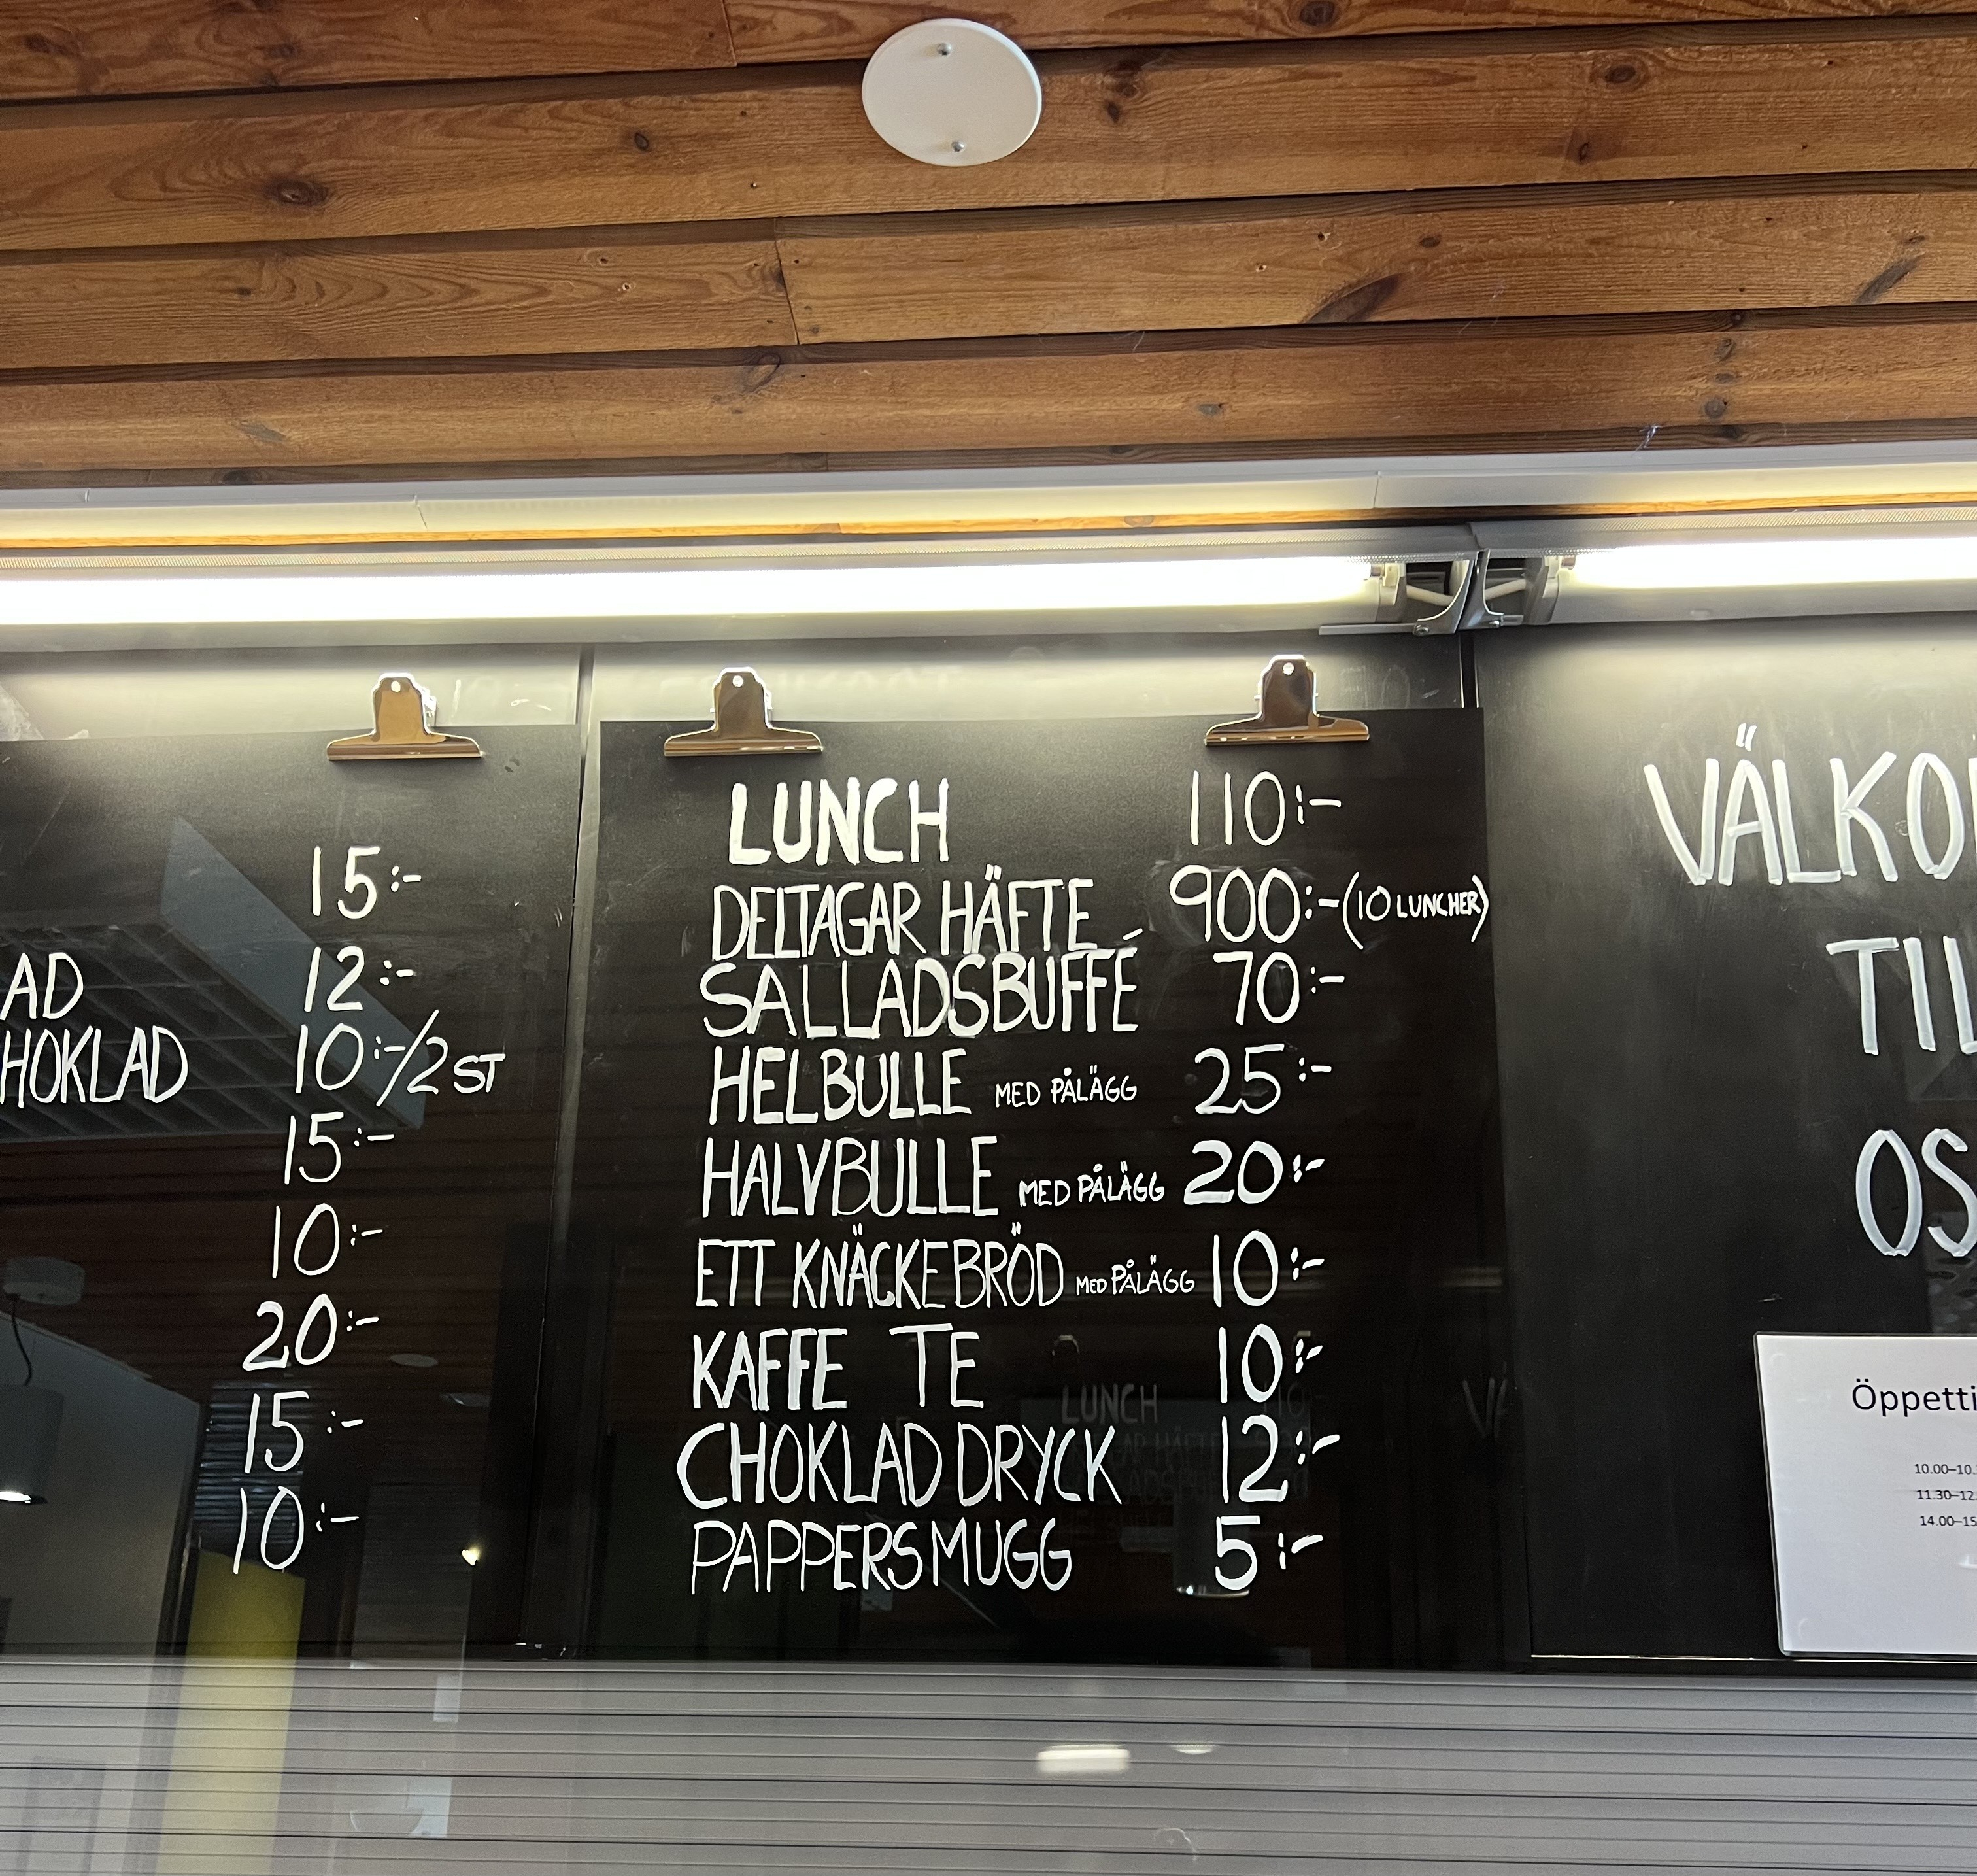 15:-
AD 12:-
HOKLAD 10:-/2 ST
15:-
10:-
20:-
15:-
10:-
LUNCH 110:-
DELTAGAR HÄFTE 900:-(10 LUNCHER)
SALLADSBUFFÉ 70:-
HELBULLE MED PÅLÄGG 25:-
HALVBULLE MED PÅLÄGG 20:-
ETT KNÄCKEBRÖD MED PÅLÄGG 10:-
KAFFE TE 10:-
CHOKLAD DRYCK 12:-
PAPPERSMUGG 5:-
VÄLKO
TIL
OS
Öppetti
10.00–10.
11.30–12.
14.00–15